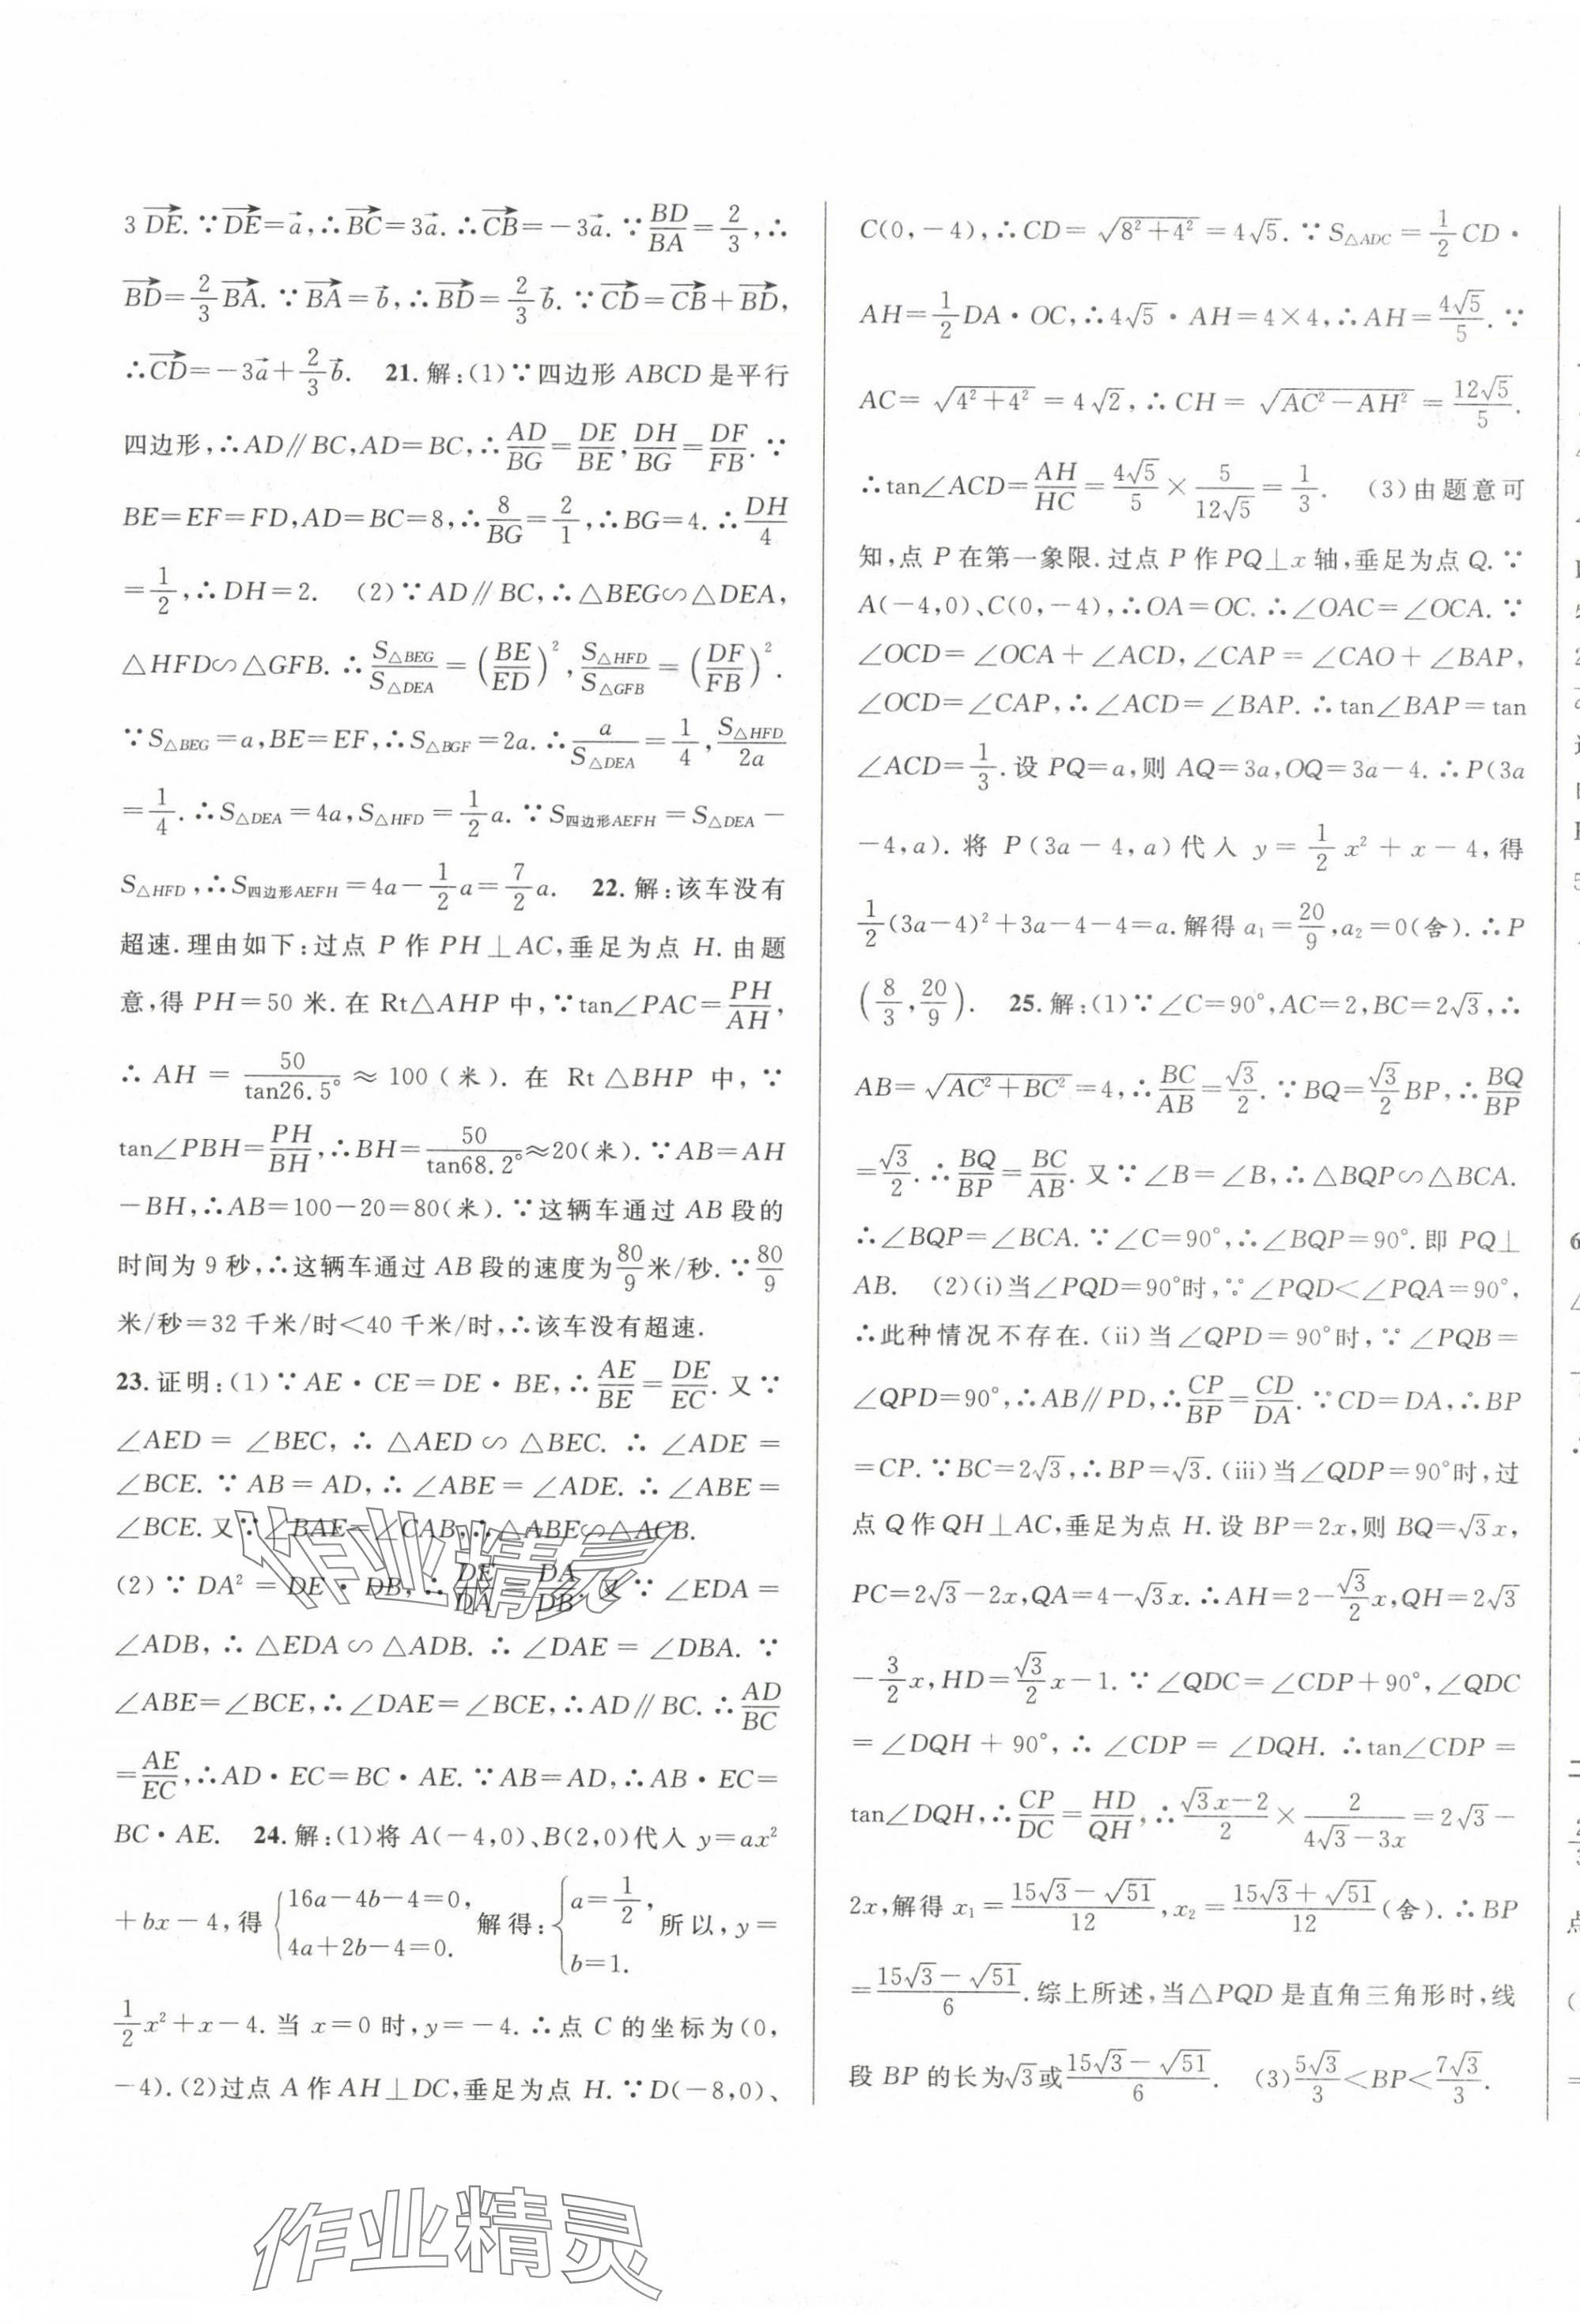 3\overrightarrow{DE}.∵\overrightarrow{DE}=\vec{a},∴\overrightarrow{BC}=3\vec{a}.∴\overrightarrow{CB}=-3\vec{a}.∵\frac{BD}{BA}=\frac{2}{3},∴
\overrightarrow{BD}=\frac{2}{3}\overrightarrow{BA}.∵\overrightarrow{BA}=\vec{b},∴\overrightarrow{BD}=\frac{2}{3}\vec{b}.∵\overrightarrow{CD}=\overrightarrow{CB}+\overrightarrow{BD},
∴\overrightarrow{CD}=-3\vec{a}+\frac{2}{3}\vec{b}. 21.解:(1)∵四边形 ABCD 是平行
四边形,∴AD∥BC,AD=BC,∴\frac{AD}{BG}=\frac{DE}{BE},\frac{DH}{BG}=\frac{DF}{FB}.∵
BE=EF=FD,AD=BC=8,∴\frac{8}{BG}=\frac{2}{1},∴BG=4.∴\frac{DH}{4}
=\frac{1}{2},∴DH=2. (2)∵AD∥BC,∴△BEG∽△DEA,
△HFD∽△GFB.∴\frac{S_{△BEG}}{S_{△DEA}}=(\frac{BE}{ED})^2,\frac{S_{△HFD}}{S_{△GFB}}=(\frac{DF}{FB})^2.
∵S_{△BEG}=a,BE=EF,∴S_{△BGF}=2a.∴\frac{a}{S_{△DEA}}=\frac{1}{4},\frac{S_{△HFD}}{2a}
=\frac{1}{4}.∴S_{△DEA}=4a,S_{△HFD}=\frac{1}{2}a.∵S_{四边形AEFH}=S_{△DEA}-
S_{△HFD},∴S_{四边形AEFH}=4a-\frac{1}{2}a=\frac{7}{2}a. 22.解:该车没有
超速.理由如下:过点 P 作 PH⊥AC,垂足为点 H.由题
意,得 PH=50 米.在 Rt△AHP 中,∵tan∠PAC=\frac{PH}{AH},
∴AH=\frac{50}{tan26.5°}≈100(米).在 Rt△BHP 中,∵
tan∠PBH=\frac{PH}{BH},∴BH=\frac{50}{tan68.2°}≈20(米).∵AB=AH
-BH,∴AB=100-20=80(米).∵这辆车通过 AB 段的
时间为 9 秒,∴这辆车通过 AB 段的速度为\frac{80}{9}米/秒.∵\frac{80}{9}
米/秒=32 千米/时<40 千米/时,∴该车没有超速.
23.证明:(1)∵AE·CE=DE·BE,∴\frac{AE}{BE}=\frac{DE}{EC}.又∵
∠AED=∠BEC,∴△AED∽△BEC.∴∠ADE=
∠BCE.∵AB=AD,∴∠ABE=∠ADE.∴∠ABE=
∠BCE.又∵∠BAE=∠CAB,∴△ABE∽△ACB.
(2)∵DA^2=DE·DB,∴\frac{DE}{DA}=\frac{DA}{DB}.又∵∠EDA=
∠ADB,∴△EDA∽△ADB.∴∠DAE=∠DBA.∵
∠ABE=∠BCE,∴∠DAE=∠BCE,∴AD∥BC.∴\frac{AD}{BC}
=\frac{AE}{EC},∴AD·EC=BC·AE.∵AB=AD,∴AB·EC=
BC·AE. 24.解:(1)将 A(-4,0)、B(2,0)代入 y=ax^2
+bx-4,得{16a-4b-4=0, 4a+2b-4=0. 解得:{a=\frac{1}{2}, b=1. 所以,y=
\frac{1}{2}x^2+x-4.当 x=0 时,y=-4.∴点 C 的坐标为(0,
-4).(2)过点 A 作 AH⊥DC,垂足为点 H.∵D(-8,0)、
C(0,-4),∴CD=\sqrt{8^2+4^2}=4\sqrt{5}.∵S_{△ADC}=\frac{1}{2}CD·
AH=\frac{1}{2}DA·OC,∴4\sqrt{5}·AH=4×4,∴AH=\frac{4\sqrt{5}}{5}.∵
AC=\sqrt{4^2+4^2}=4\sqrt{2},∴CH=\sqrt{AC^2-AH^2}=\frac{12\sqrt{5}}{5}.
∴tan∠ACD=\frac{AH}{HC}=\frac{4\sqrt{5}}{5}×\frac{5}{12\sqrt{5}}=\frac{1}{3}. (3)由题意可
知,点 P 在第一象限.过点 P 作 PQ⊥x 轴,垂足为点 Q.∵
A(-4,0)、C(0,-4),∴OA=OC.∴∠OAC=∠OCA.∵
∠OCD=∠OCA+∠ACD,∠CAP=∠CAO+∠BAP,
∠OCD=∠CAP,∴∠ACD=∠BAP.∴tan∠BAP=tan
∠ACD=\frac{1}{3}.设 PQ=a,则 AQ=3a,OQ=3a-4.∴P(3a
-4,a).将 P(3a-4,a)代入 y=\frac{1}{2}x^2+x-4,得
\frac{1}{2}(3a-4)^2+3a-4-4=a.解得 a_1=\frac{20}{9},a_2=0(舍).∴P
(\frac{8}{3},\frac{20}{9}). 25.解:(1)∵∠C=90°,AC=2,BC=2\sqrt{3},∴
AB=\sqrt{AC^2+BC^2}=4,∴\frac{BC}{AB}=\frac{\sqrt{3}}{2}.∵BQ=\frac{\sqrt{3}}{2}BP,∴\frac{BQ}{BP}
=\frac{\sqrt{3}}{2}.∴\frac{BQ}{BP}=\frac{BC}{AB}.又∵∠B=∠B,∴△BQP∽△BCA.
∴∠BQP=∠BCA.∵∠C=90°,∴∠BQP=90°.即 PQ⊥
AB. (2)(i)当∠PQD=90°时,∵∠PQD<∠PQA=90°,
∴此种情况不存在.(ii)当∠QPD=90°时,∵∠PQB=
∠QPD=90°,∴AB∥PD,∴\frac{CP}{BP}=\frac{CD}{DA}.∵CD=DA,∴BP
=CP.∵BC=2\sqrt{3},∴BP=\sqrt{3}.(iii)当∠QDP=90°时,过
点 Q 作 QH⊥AC,垂足为点 H.设 BP=2x,则 BQ=\sqrt{3}x,
PC=2\sqrt{3}-2x,QA=4-\sqrt{3}x.∴AH=2-\frac{\sqrt{3}}{2}x,QH=2\sqrt{3}
-\frac{3}{2}x,HD=\frac{\sqrt{3}}{2}x-1.∵∠QDC=∠CDP+90°,∠QDC
=∠DQH+90°,∴∠CDP=∠DQH.∴tan∠CDP=
tan∠DQH,∴\frac{CP}{DC}=\frac{HD}{QH},∴\frac{\sqrt{3}x-2}{2}×\frac{2}{4\sqrt{3}-3x}=2\sqrt{3}-
2x,解得 x_1=\frac{15\sqrt{3}-\sqrt{51}}{12},x_2=\frac{15\sqrt{3}+\sqrt{51}}{12}(舍).∴BP
=\frac{15\sqrt{3}-\sqrt{51}}{6}.综上所述,当△PQD 是直角三角形时,线
段 BP 的长为\sqrt{3}或\frac{15\sqrt{3}-\sqrt{51}}{6}. (3)\frac{5\sqrt{3}}{3}<BP<\frac{7\sqrt{3}}{3}.
作业精灵
作业精灵